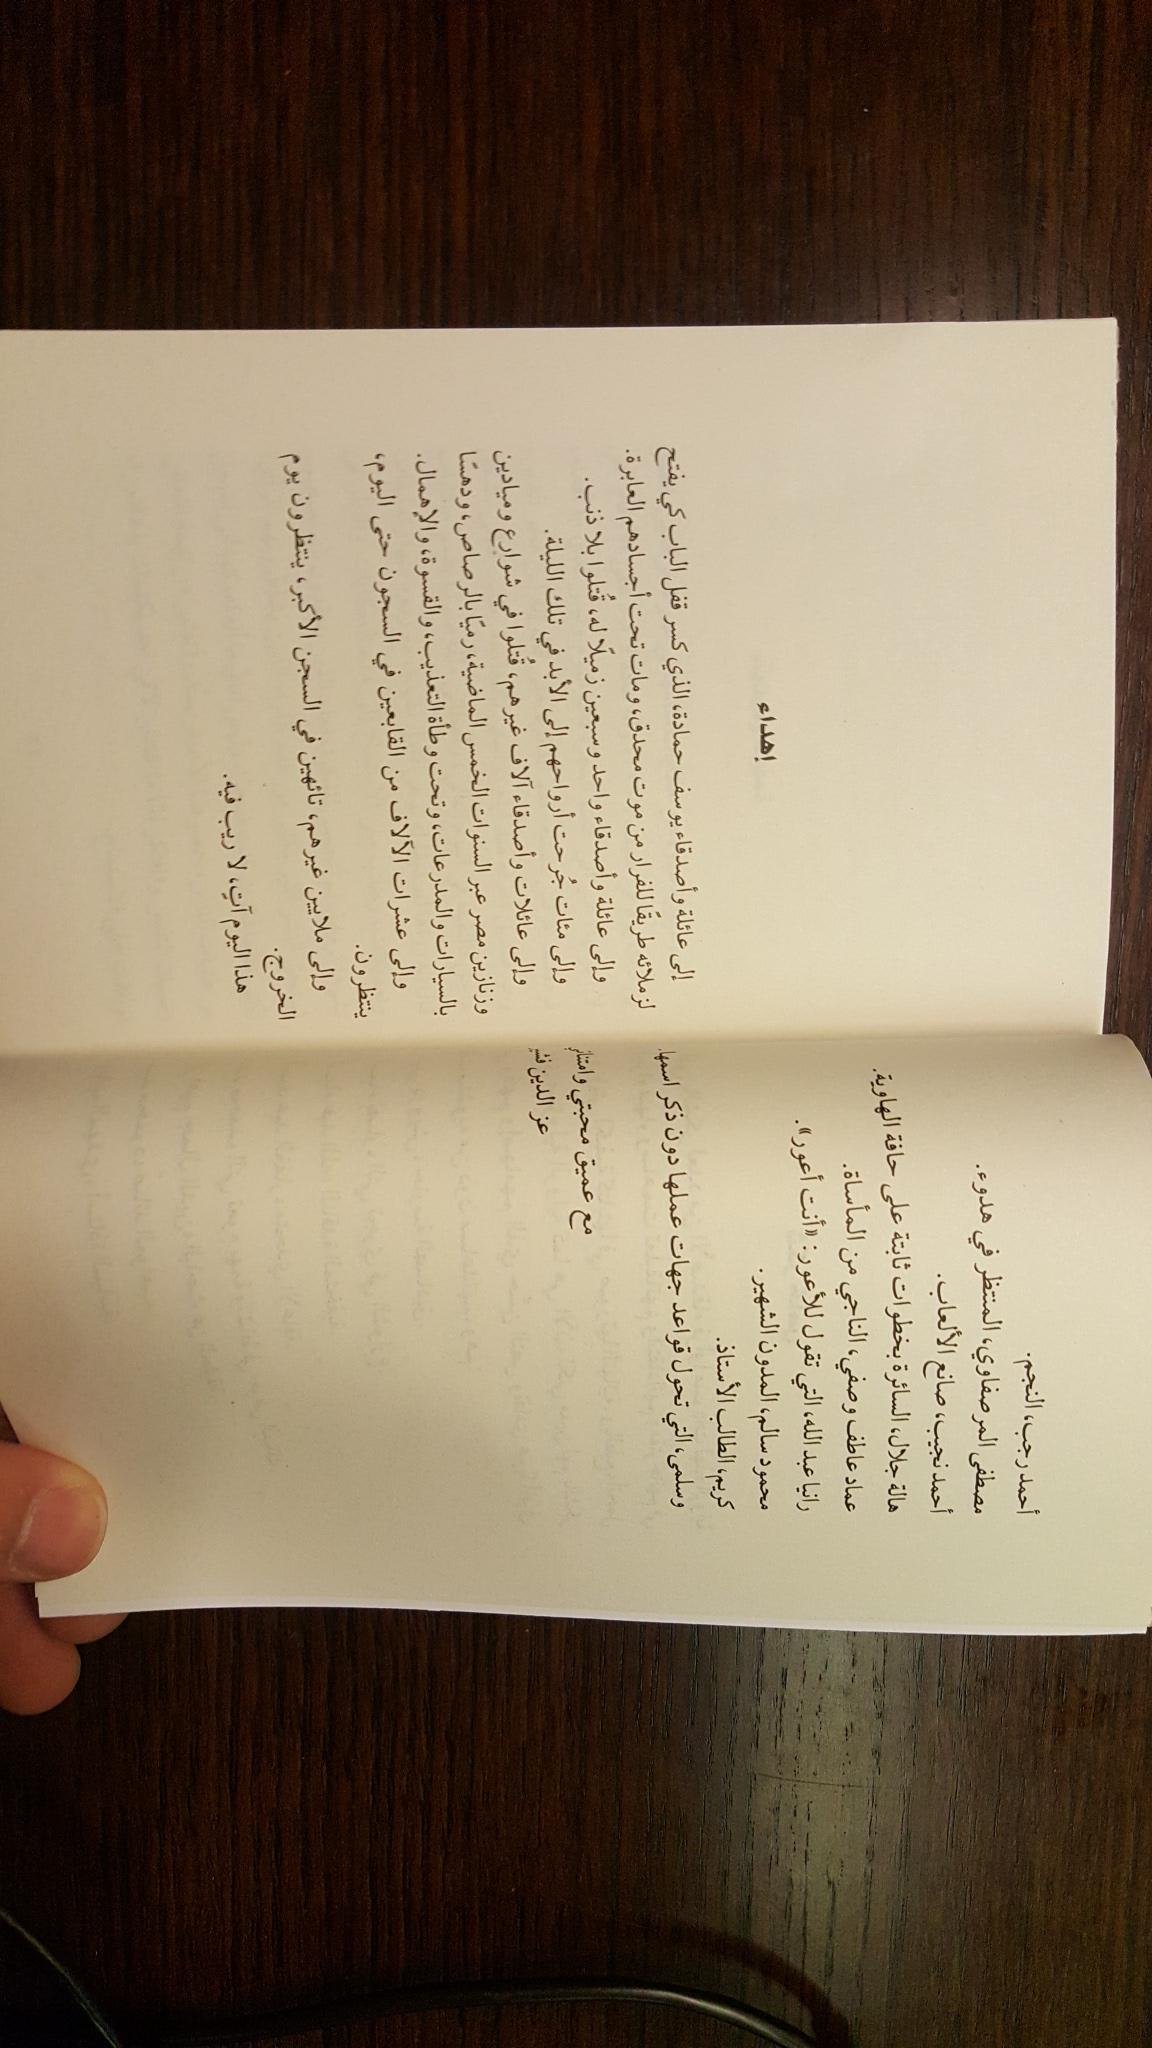 أحمد رجب، النجم.
مصطفى المرصفاوي، المنتظر في هدوء.
أحمد نجيب، صانع الألعاب.
هالة جلال، السائرة بخطوات ثابتة على حافة الهاوية.
عماد عاطف وصفي، الناجي من المأساة.
رانيا عبد الله، التي تقول للأعور: «أنت أعور».
محمود سالم، المدون الشهير.
كريم، الطالب الأستاذ.
وسلمى، التي تحول قواعد جهات عملها دون ذكر اسمها.
مع عميق محبتي
عز الدين
إهداء
إلى عائلة وأصدقاء يوسف حمادة، الذي كسر قفل الباب كي يفتح
لزملائه طريقًا للفرار من موت محدق، ومات تحت أجسادهم العابرة.
وإلى عائلة وأصدقاء واحد وسبعين زميلًا له، قُتلوا بلا ذنب.
وإلى مئات جُرحت أرواحهم إلى الأبد في تلك الليلة.
وإلى عائلات وأصدقاء آلاف غيرهم، قُتلوا في شوارع وميادين
وزنازين مصر عبر السنوات الخمس الماضية، رميًا بالرصاص، ودهسًا
بالسيارات والمدرعات، وتحت وطأة التعذيب، والقسوة، والإهمال.
وإلى عشرات الآلاف من القابعين في السجون حتى اليوم،
ينتظرون.
وإلى ملايين غيرهم، تائهين في السجن الأكبر، ينتظرون يوم
الخروج.
هذا اليوم آتٍ، لا ريب فيه.